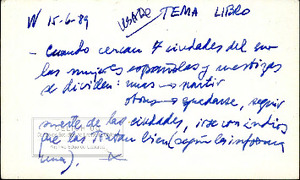 W 15-6-89 USADO TEMA LIBRO
- Cuando cercan 7 ciudades del sur
las mujeres españolas y mestizas
se dividen: unas a partir
otras a quedarse, seguir
suerte de las ciudades, irse con indios
que las tratan bien (según la informa
una)